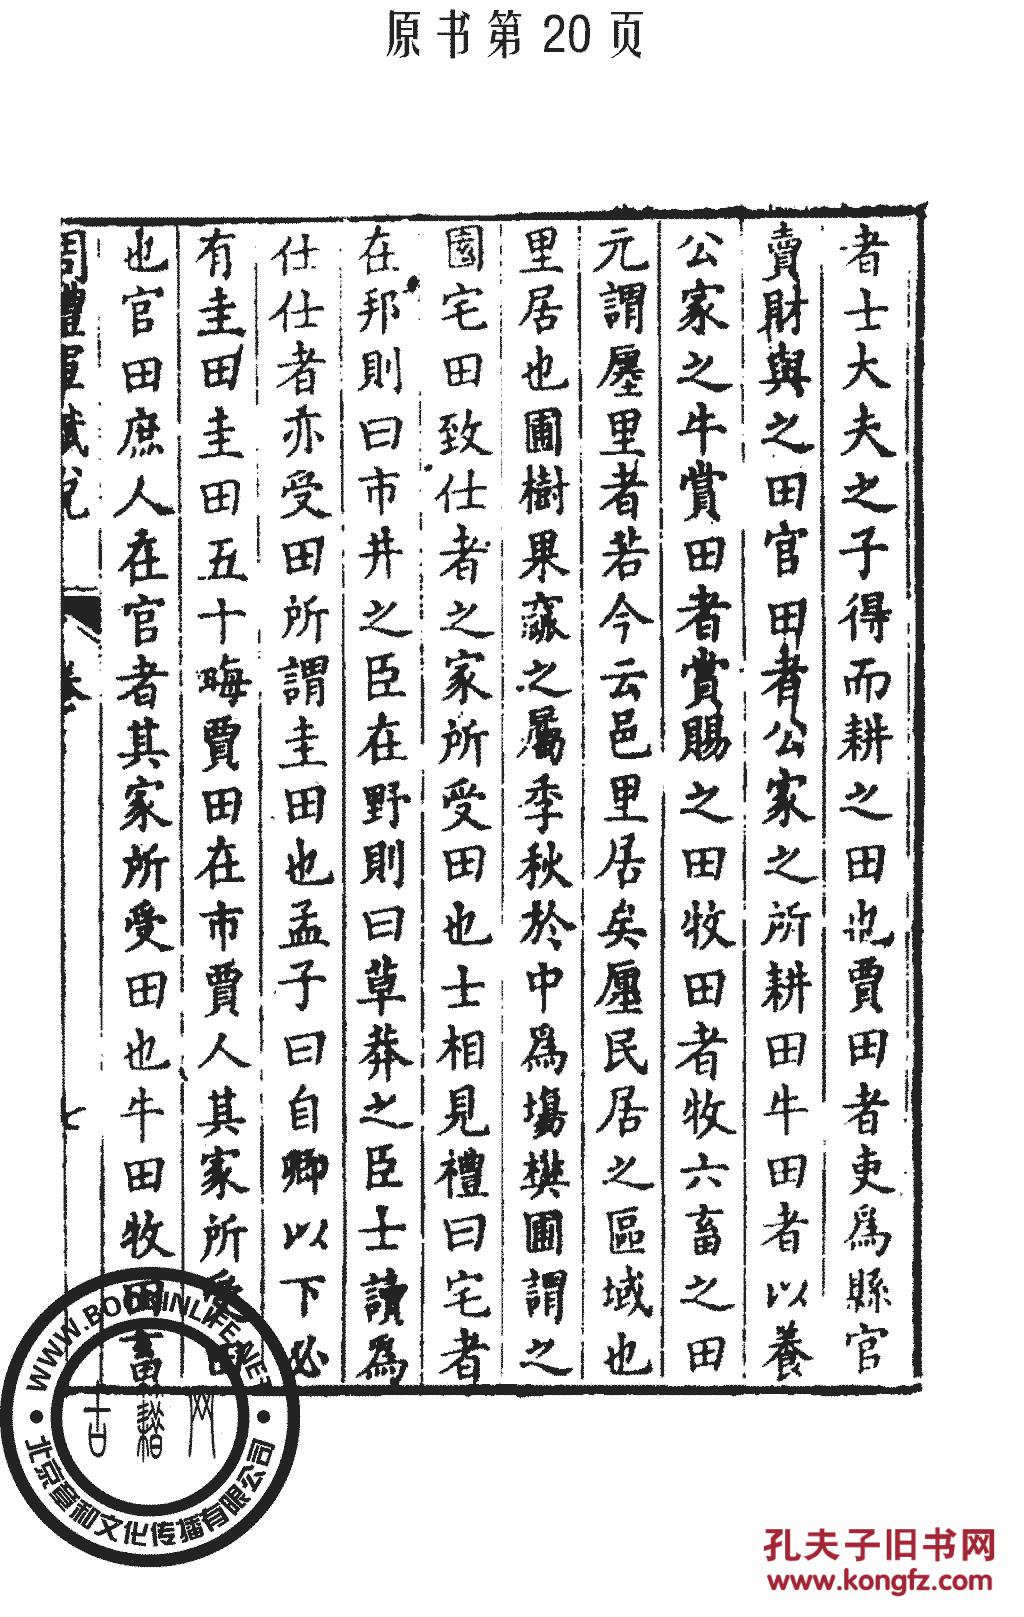 原书第20页
者士大夫之子得而耕之田也賈田者吏爲縣官
賣財與之田官田者公家之所耕田牛田者以養
公家之牛賞田者賞賜之田牧田者牧六畜之田
元謂廛里者若今云邑里居矣廛民居之區域也
里居也圃樹果蓏之屬季秋於中爲場樊圃謂之
園宅田致仕者之家所受田也士相見禮曰宅者
在邦則曰市井之臣在野則曰草莽之臣士讀爲
仕仕者亦受田所謂圭田也孟子曰自卿以下必
有圭田圭田五十畮賈田在市賈人其家所受田
也官田庶人在官者其家所受田也牛田牧田畜
周禮軍賦說 卷 七
WWW.BOOKINLIFE.NET
古籍网
北京章和文化传播有限公司
孔夫子旧书网
www.kongfz.com